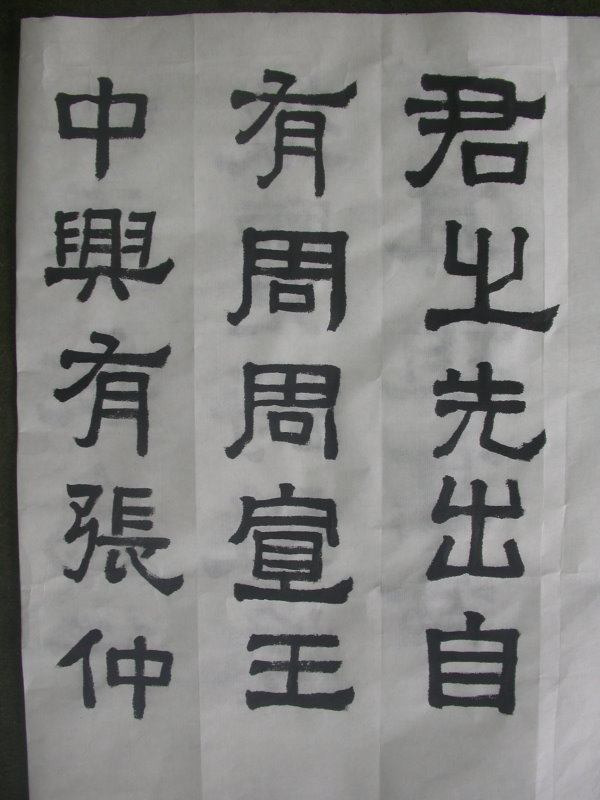 君之先出自
有周周宣王
中興有張仲